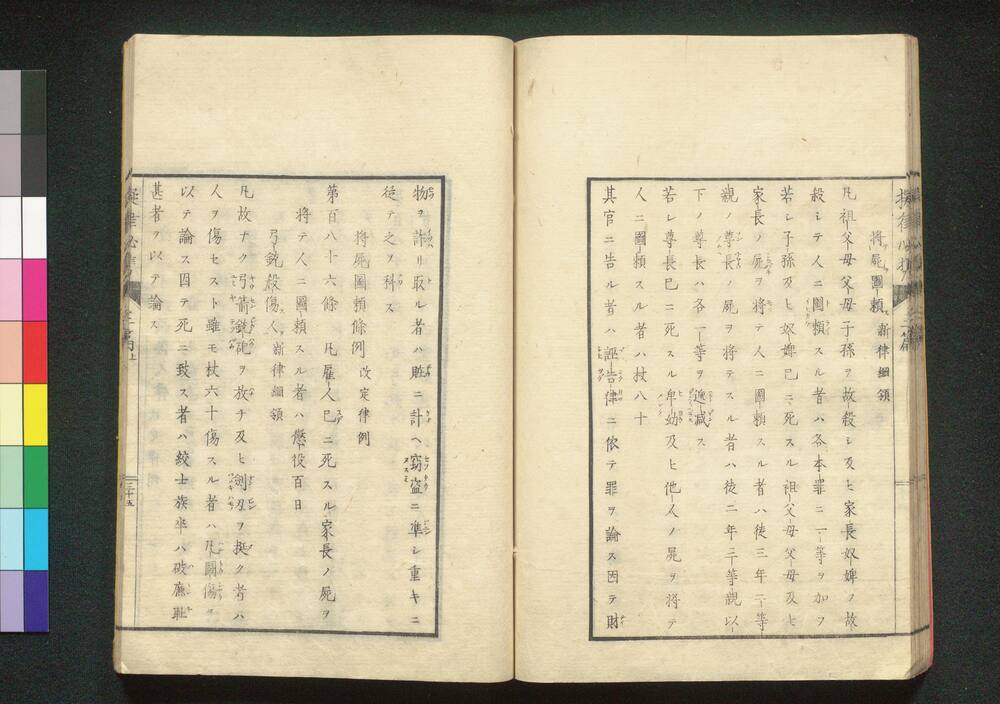 將屍圖頼 新律綱領
凡祖父母父母子孫ヲ故殺シ及ヒ家長奴婢ヲ故
殺シテ人ニ圖頼スル者ハ各本罪ニ一等ヲ加フ
若シ子孫及ヒ奴婢已ニ死スル祖父母父母及ヒ
家長ノ屍ヲ將テ人ニ圖頼スル者ハ徒三年二等
親ノ尊長ノ屍ヲ將テスル者ハ徒二年三等親以
下ノ尊長ハ各一等ヲ遞减ス
若シ尊長已ニ死スル卑幼及ヒ他人ノ屍ヲ將テ
人ニ圖頼スル者ハ杖八十
其官ニ告ル者ハ誣告律ニ依テ罪ヲ論ス因テ財
物ヲ詐リ取ル者ハ贓ニ計ヘ竊盗ニ準シ重キニ
從テ之ヲ科ス
將屍圖頼條例 改定律例
第百八十六條 凡雇人已ニ死スル家長ノ屍ヲ
將テ人ニ圖頼スル者ハ懲役百日
弓銃殺傷人 新律綱領
凡故ナク弓箭銃砲ヲ放チ及ヒ劍刃ヲ挺ク者ハ
人ヲ傷セスト雖モ杖六十傷スル者ハ凡鬪傷ヲ
以テ論ス因テ死ニ致ス者ハ絞士族卒ハ破廉耻
甚者ヲ以テ論ス
三十五